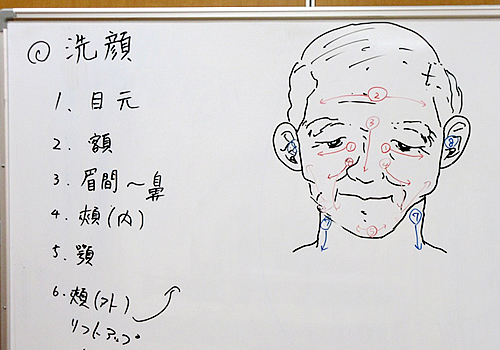 ◎ 洗顔
1. 目元
2. 額
3. 眉間～鼻
4. 頬(内)
5. 顎
6. 頬(外)
リフトアップ
②
③
①
①
⑤
⑦
⑧